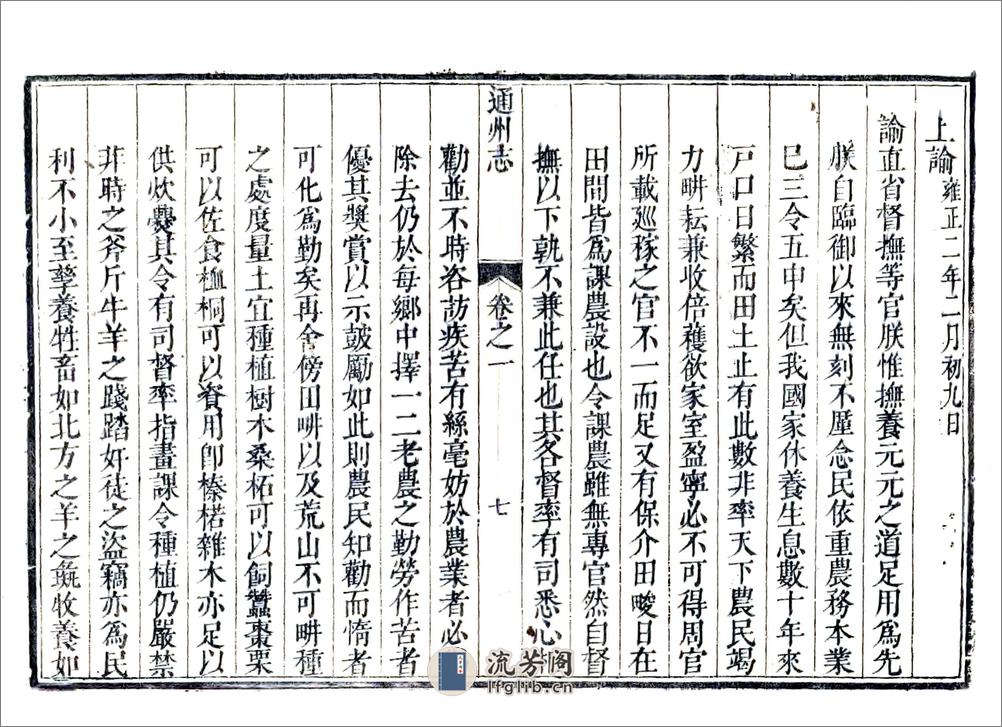 上諭雍正二年二月初九日
諭直省督撫等官朕惟撫養元元之道足用爲先
朕自臨御以來無刻不厪念民依重農務本業
已三令五申矣但我國家休養生息數十年來
戸口日繁而田土止有此數非率天下農民竭
力畊耘兼收倍穫欲家室盈寧必不可得周官
所載廵稼之官不一而足又有保介田畯日在
田間皆爲課農設也今課農雖無專官然自督
撫以下孰不兼此任也其各督率有司悉心
通州志
卷之一
七
勸並不時咨訪疾苦有絲毫妨於農業者必
除去仍於每鄉中擇一二老農之勤勞作苦者
優其奬賞以示鼓勵如此則農民知勸而惰者
可化爲勤矣再舍傍田畔以及荒山不可畊種
之處度量土宜種植樹木桑柘可以飼蠶棗栗
可以佐食桕桐可以資用卽榛楛雜木亦足以
供炊爨其令有司督率指畫課令種植仍嚴禁
非時之斧斤牛羊之踐踏奸徒之盜竊亦爲民
利不小至孳養牲畜如北方之羊之彘牧養如
流芳阁
lfglib.cn